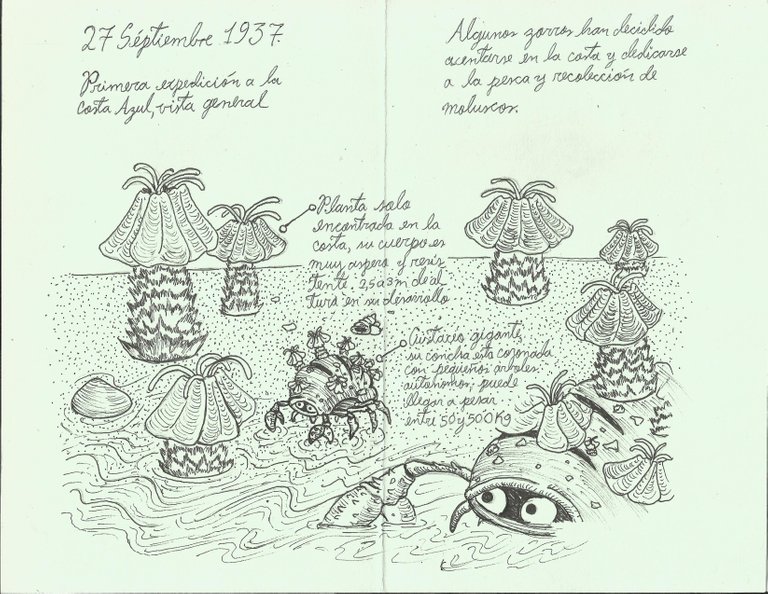 27 Séptiembre 1937.
Primera expedición a la
costa Azul, vista general
Algunos zorros han decidido
acentarse en la costa y dedicarse
a la pesca y recolección de
moluscos.
Planta solo
encontrada en la
costa, su cuerpo es
muy aspero y resis
tente 2,5 a 3m de al
tura en su desarrollo
Custacio gigante,
su concha esta coronada
con pequeños arboles
autonomos, puede
llegar a pesar
entre 50 y 500Kg